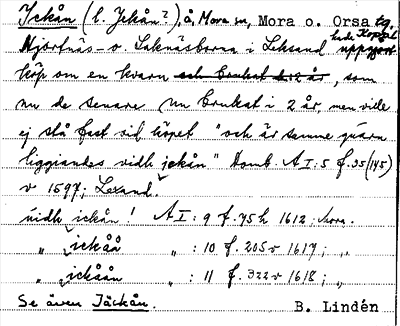 Ickån (l. Jekån?), å, Mora sn, Mora o. Orsa tg.
Njörtnäs- o. Laknäsborna i Leksand hade Kopgl uppgjort
köp om en kvarn och brukat d. 2 år, som
nu de senare nu brukat i 2 år, men ville
ej stå fast vid köpet "och är samme quarn
liggiandes vidh jckån" Domb. A I: 5 f. 35 (145)
v 1597; Lexand.
uidh ickån! A I: 9 f. 75 h 1612; Mora.
" ickåå " : 10 f. 205 v 1617; "
" ickåån " : 11 f. 322 v 1618; "
Se även Jäckån. B. Lindén